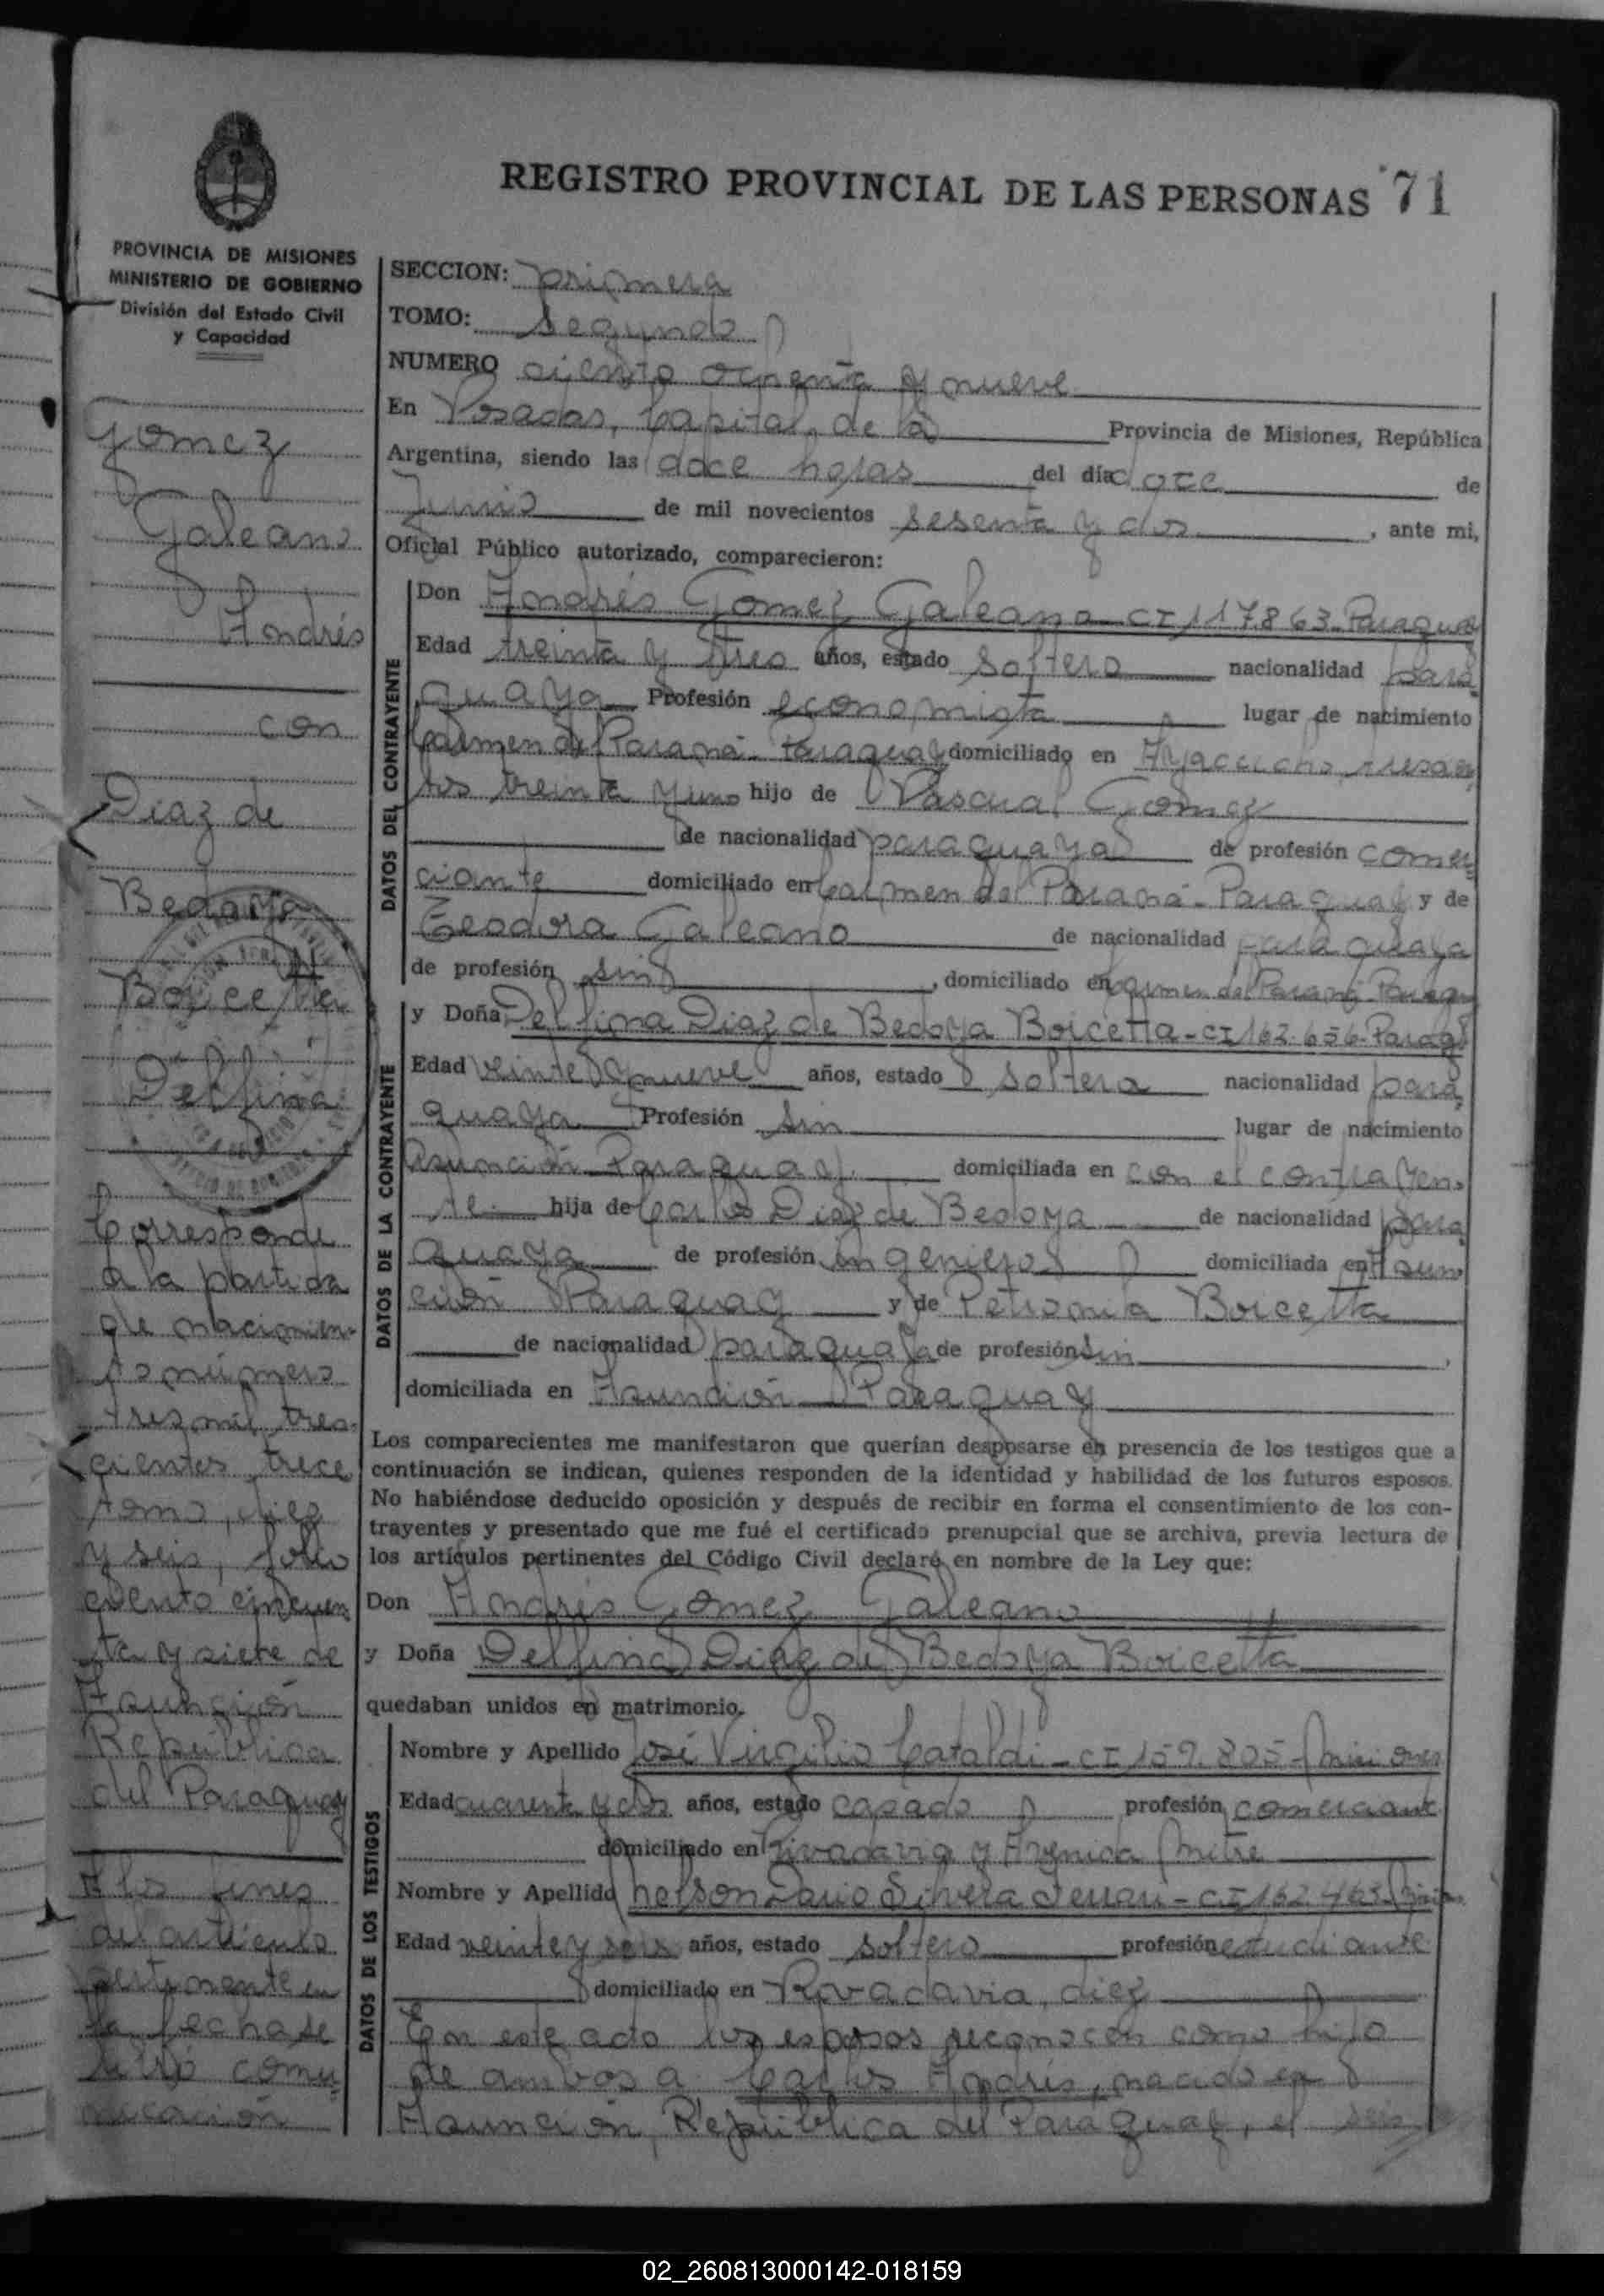 REGISTRO PROVINCIAL DE LAS PERSONAS 71
PROVINCIA DE MISIONES
MINISTERIO DE GOBIERNO
División del Estado Civil
y Capacidad
Gomez
Galeano
Andrés
con
Diaz de
Bedoya
Boicetta
Delfina
Corresponde
a la partida
de nacimien-
to número
tres mil tres-
cientos trece
tomo, diez
y seis, folio
ciento cincuen
ta y siete de
Asunción
República
del Paraguay
A los fines
del artículo
pertinente en
la fecha se
libró comu-
nicación
SECCION: primera
TOMO: Segundo
NUMERO ciento ochenta y nueve
En Posadas, Capital, de la Provincia de Misiones, República
Argentina, siendo las doce horas del día doce de
Junio de mil novecientos sesenta y dos, ante mi,
Oficial Público autorizado, comparecieron:
DATOS DEL CONTRAYENTE
Don Andrés Gomez Galeano - CI 117.863 - Paraguay
Edad treinta y tres años, estado soltero nacionalidad para
guaya Profesión economista lugar de nacimiento
Carmen del Paraná - Paraguay domiciliado en Ayacucho, trescien
tos treinta y uno hijo de Pascual Gomez
de nacionalidad paraguaya de profesión comer
ciante domiciliado en Carmen del Paraná - Paraguay y de
Teodora Galeano de nacionalidad paraguaya
de profesión sin, domiciliado en Carmen del Paraná - Paraguay
DATOS DE LA CONTRAYENTE
y Doña Delfina Diaz de Bedoya Boicetta - CI 162.656 - Parag
Edad veinte y nueve años, estado soltera nacionalidad para
guaya Profesión sin lugar de nacimiento
Asunción - Paraguay domiciliada en con el contrayen-
te hija de Carlos Diaz de Bedoya de nacionalidad para
guaya de profesión ingeniero domiciliada en Asun
ción Paraguay y de Petrona Boicetta
de nacionalidad paraguaya de profesión sin,
domiciliada en Asunción - Paraguay
Los comparecientes me manifestaron que querían desposarse en presencia de los testigos que a
continuación se indican, quienes responden de la identidad y habilidad de los futuros esposos.
No habiéndose deducido oposición y después de recibir en forma el consentimiento de los con-
trayentes y presentado que me fué el certificado prenupcial que se archiva, previa lectura de
los artículos pertinentes del Código Civil declaré en nombre de la Ley que:
Don Andrés Gomez Galeano
y Doña Delfina Diaz de Bedoya Boicetta
quedaban unidos en matrimonio.
DATOS DE LOS TESTIGOS
Nombre y Apellido José Virgilio Cataldi - CI 159.805 - Misiones
Edad cuarenta y dos años, estado casado profesión comerciante
domiciliado en Rivadavia y Avenida Mitre
Nombre y Apellido Nelson Dario Silvera - CI 162.463
Edad veinte y seis años, estado soltero profesión estudiante
domiciliado en Rivadavia, diez
En este acto los esposos reconocen como hijo
de ambos a Carlos Andrés, nacido en
Asunción, República del Paraguay, el seis
02_260813000142-018159